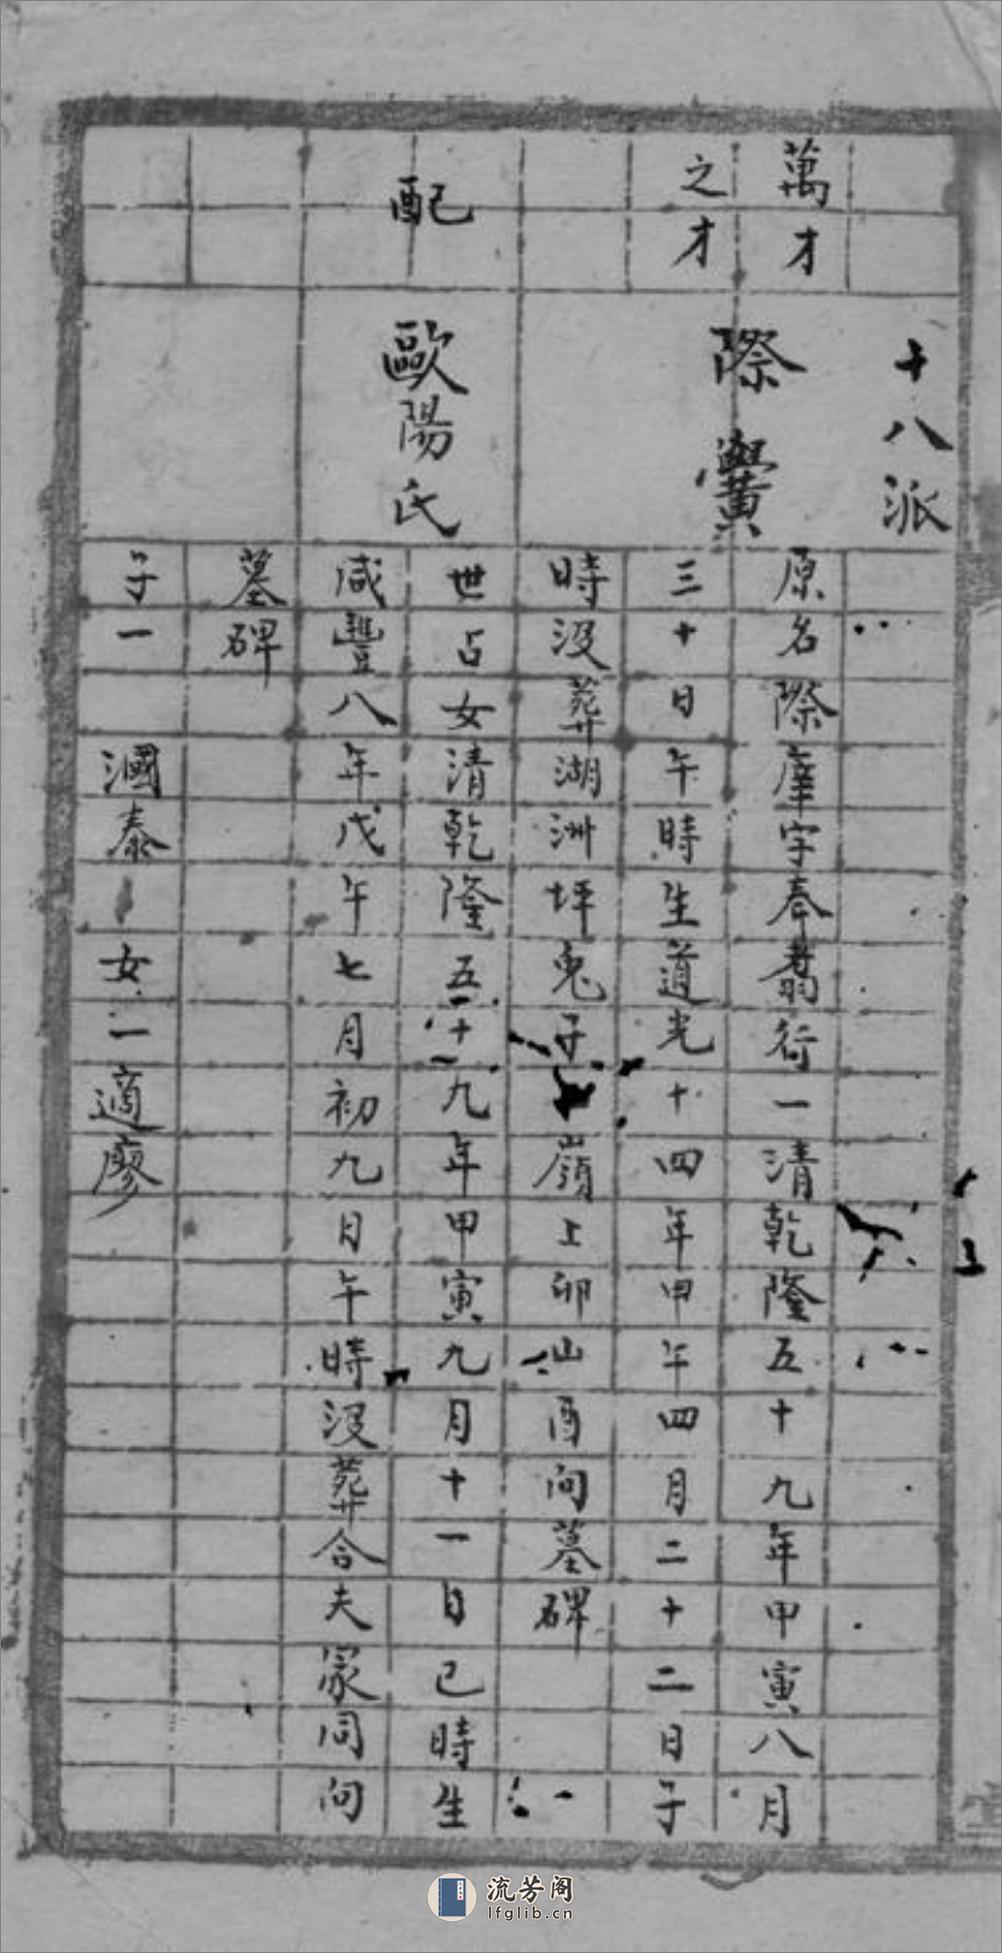 十八派
萬才
之才
際黌
原名際庠字奉翥行一清乾隆五十九年甲寅八月
三十日午時生道光十四年甲午四月二十二日子
時没葬湖洲坪兎子嶺上卯山酉向墓碑
配
歐陽氏
世占女清乾隆五十九年甲寅九月十一日巳時生
咸豐八年戊午七月初九日午時没葬合夫冢同向
墓碑
子一 國泰 女一適廖
流芳阁
lfglib.cn